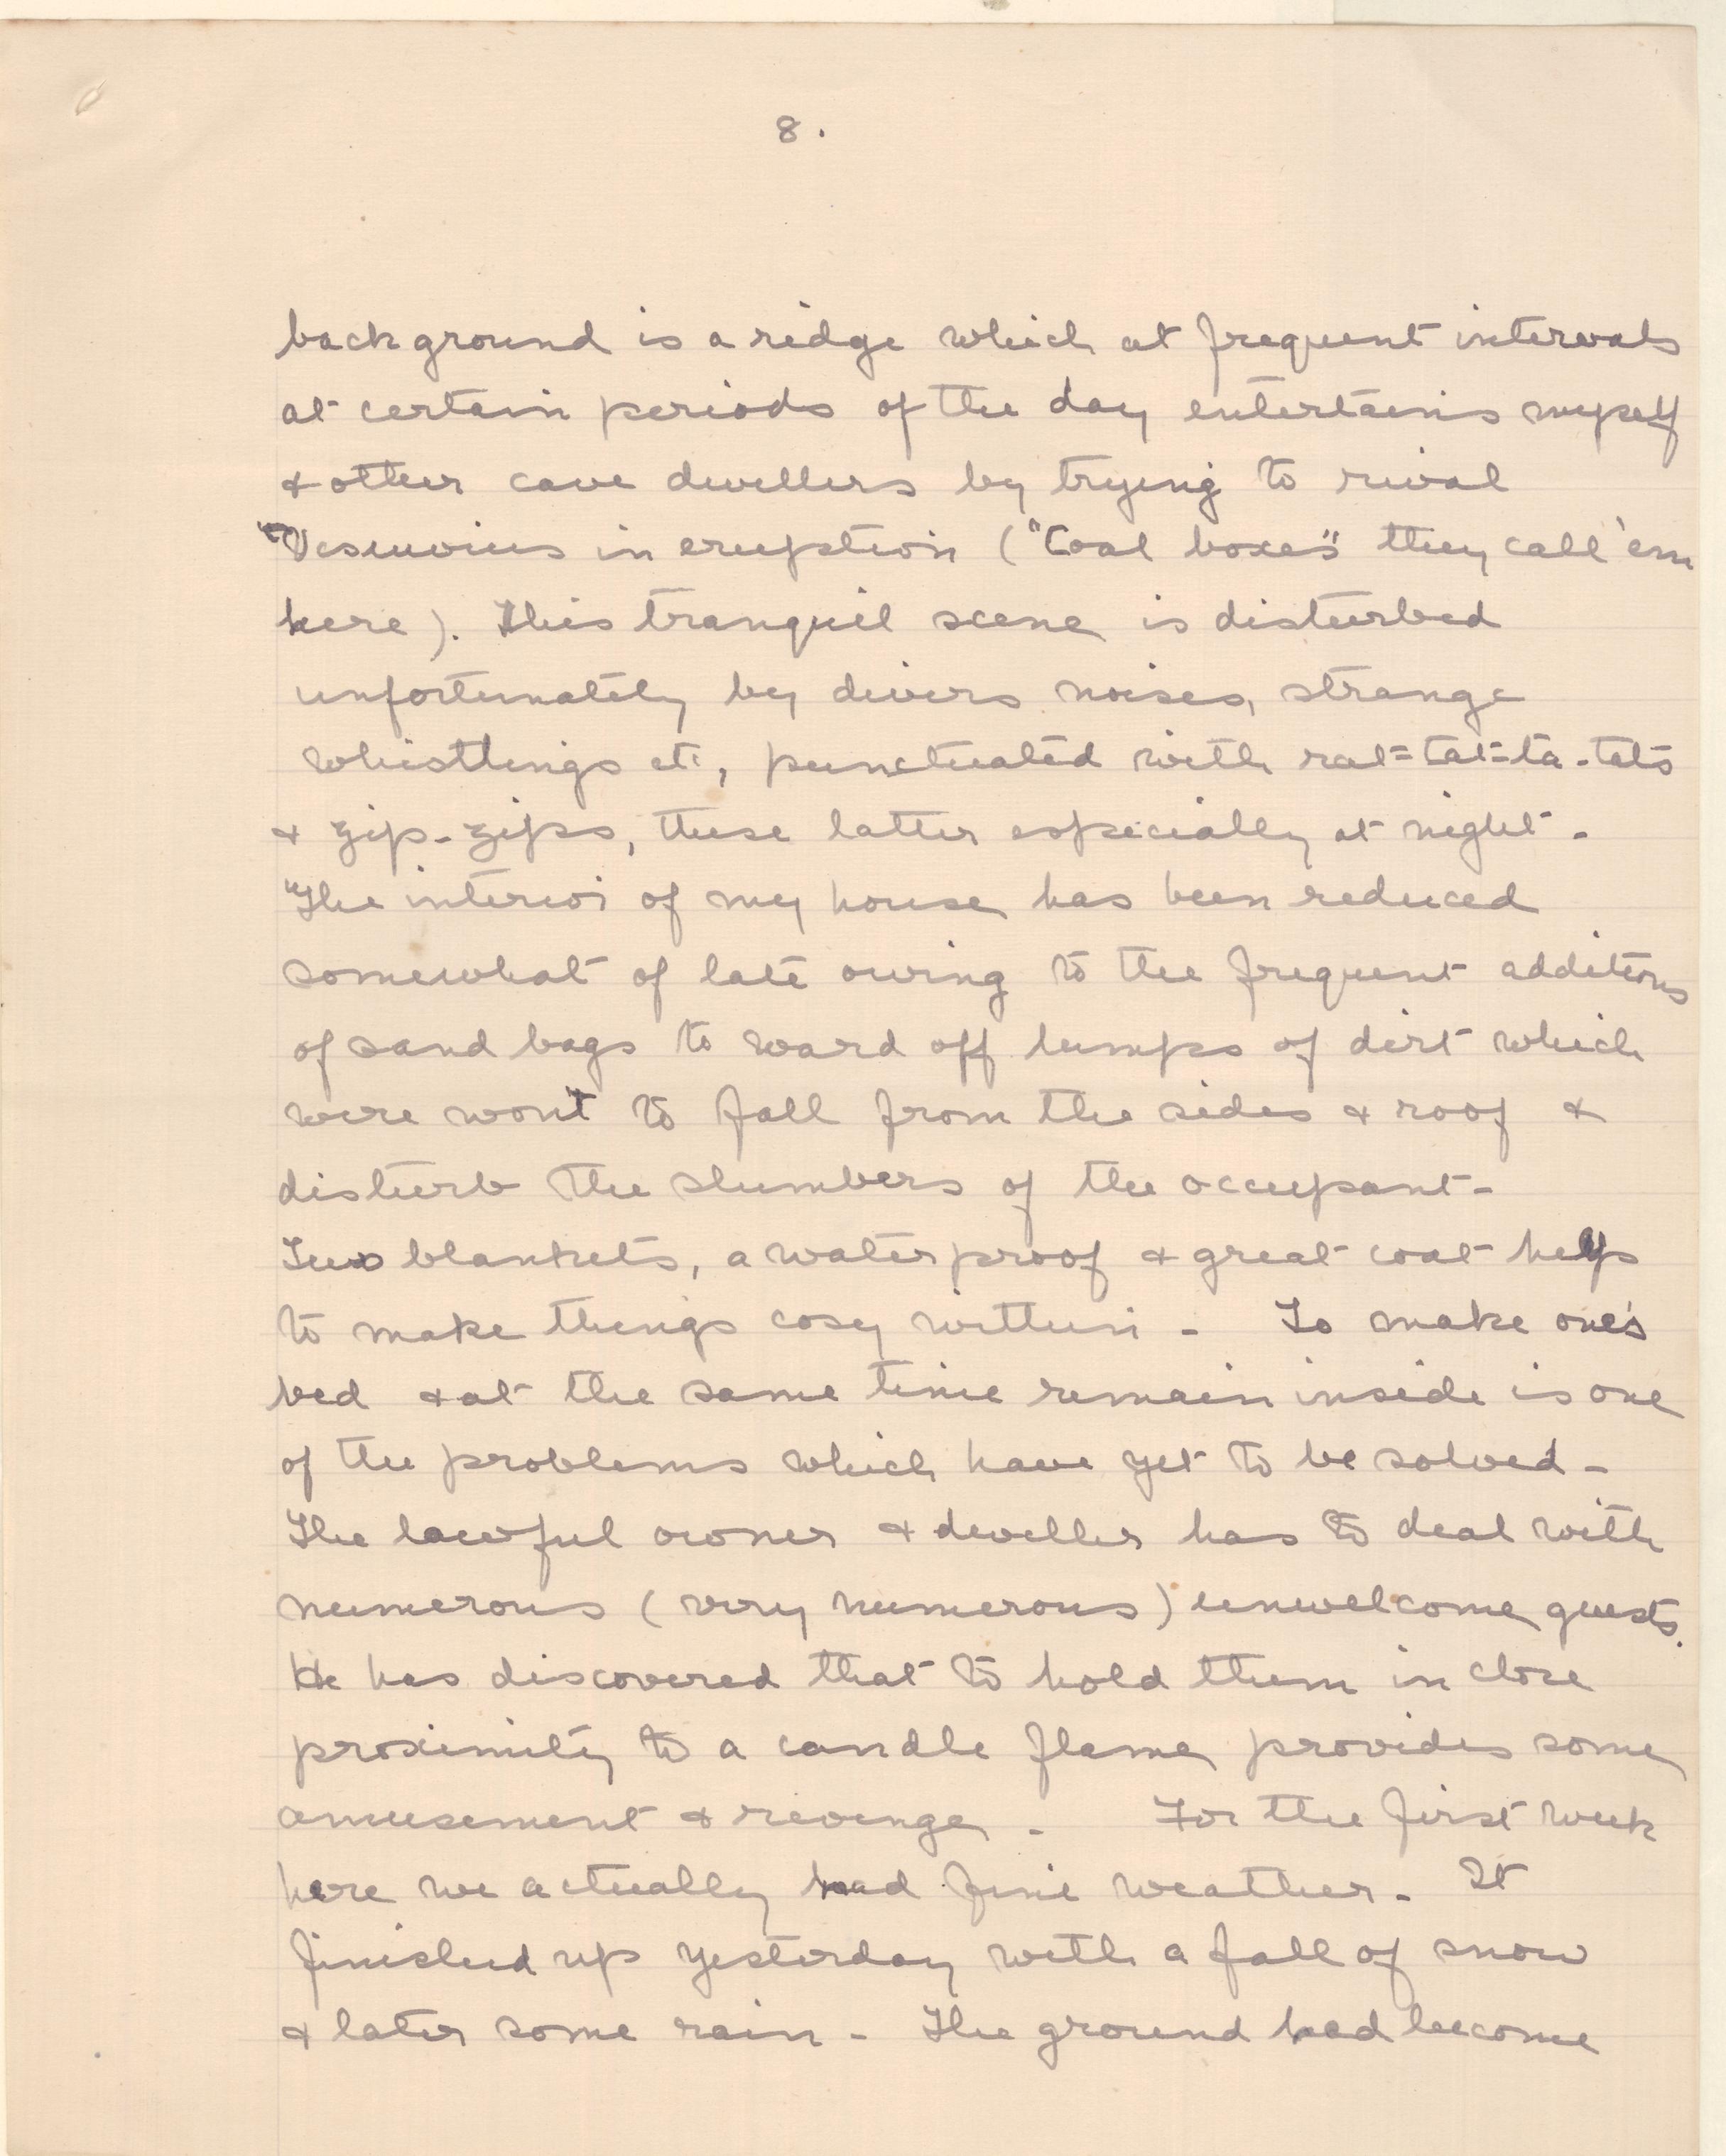 8.
background is a ridge which at frequent intervals
at certain periods of the day entertains myself
& other cave dwellers by trying to rival
"Vesuvius in eruption ("Coal boxes" they call 'em
here). This tranquil scene is disturbed
unfortunately by divers noises, strange
whistlings etc, punctuated with rat-tat-ta-tats
& zip-zips, these latter especially at night -
"The interior of my house has been reduced
somewhat of late owing to the frequent additions
of sand bags to ward off lumps of dirt which
were wont to fall from the sides & roof &
disturb the slumbers of the occupant -
Two blankets, a waterproof & great coat help
to make things cosy within - To make one's
bed & at the same time remain inside is one
of the problems which have yet to be solved -
The lawful owner & dweller has to deal with
numerous (very numerous) unwelcome guests.
He has discovered that to hold them in close
proximity to a candle flame provides some
amusement & revenge - For the first week
here we actually had fine weather - It
finished up yesterday with a fall of snow
& later some rain - The ground had become